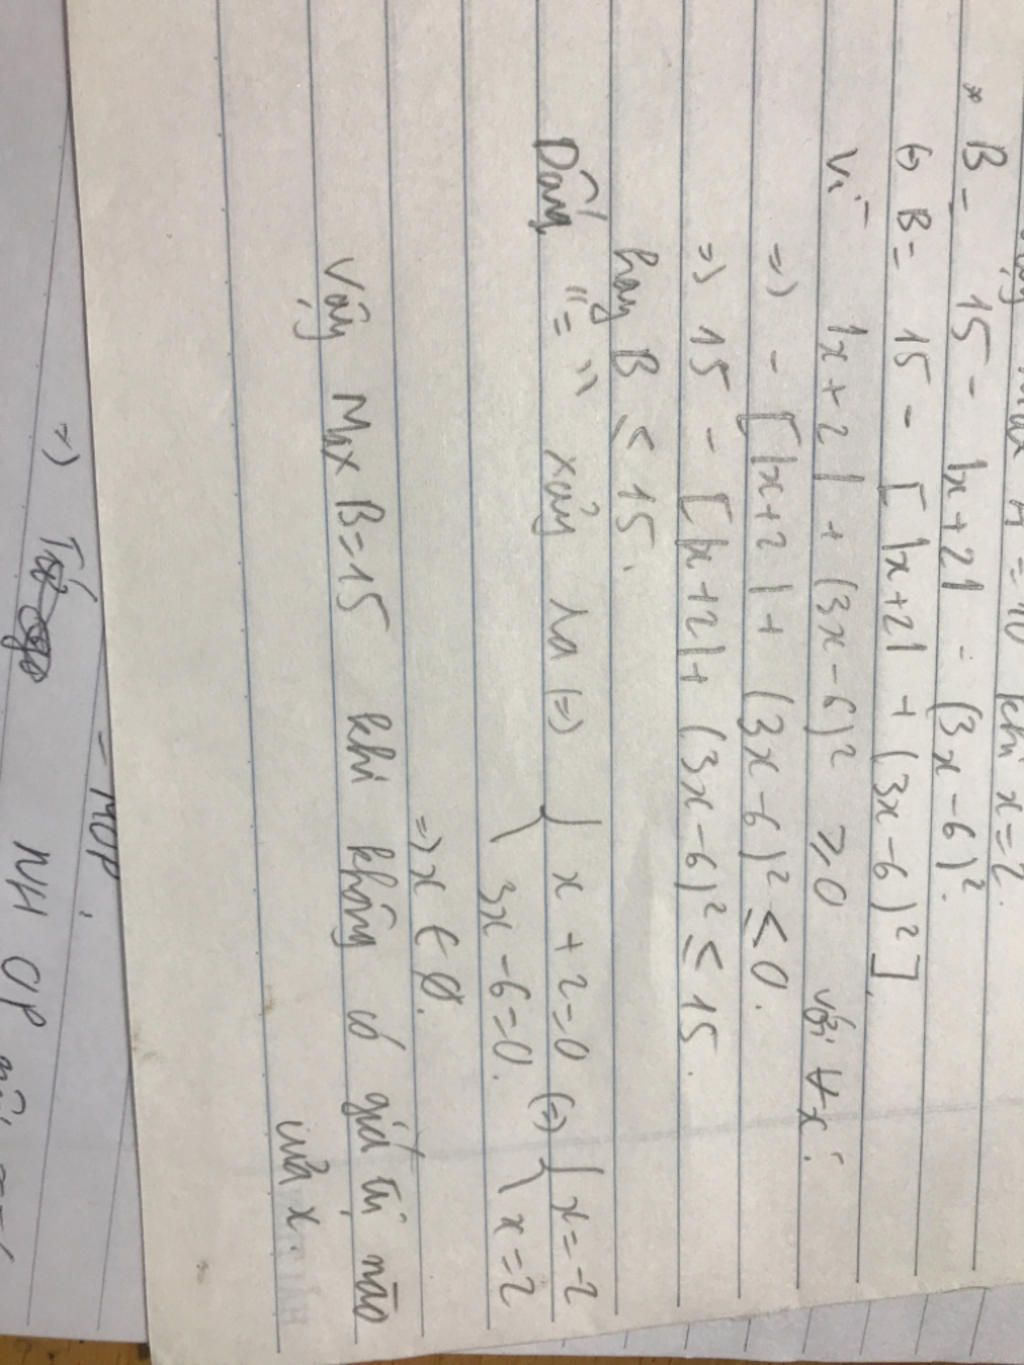 Max A = 10 khi x = 2.
* B = 15 - |x+2| - (3x-6)².
⇔ B = 15 - [|x+2| + (3x-6)²].
Vì |x+2| + (3x-6)² ≥ 0 với ∀x.
=> - [|x+2| + (3x-6)² ≤ 0.
=> 15 - [|x+2| + (3x-6)² ≤ 15.
hay B ≤ 15.
Dấu "=" xảy ra (=) { x + 2 = 0 (=) { x = -2
3x - 6 = 0. x = 2
=> x ∈ ∅.
Vậy Max B = 15 khi không có giá trị nào
của x.
- MOP.
=>
NH OP